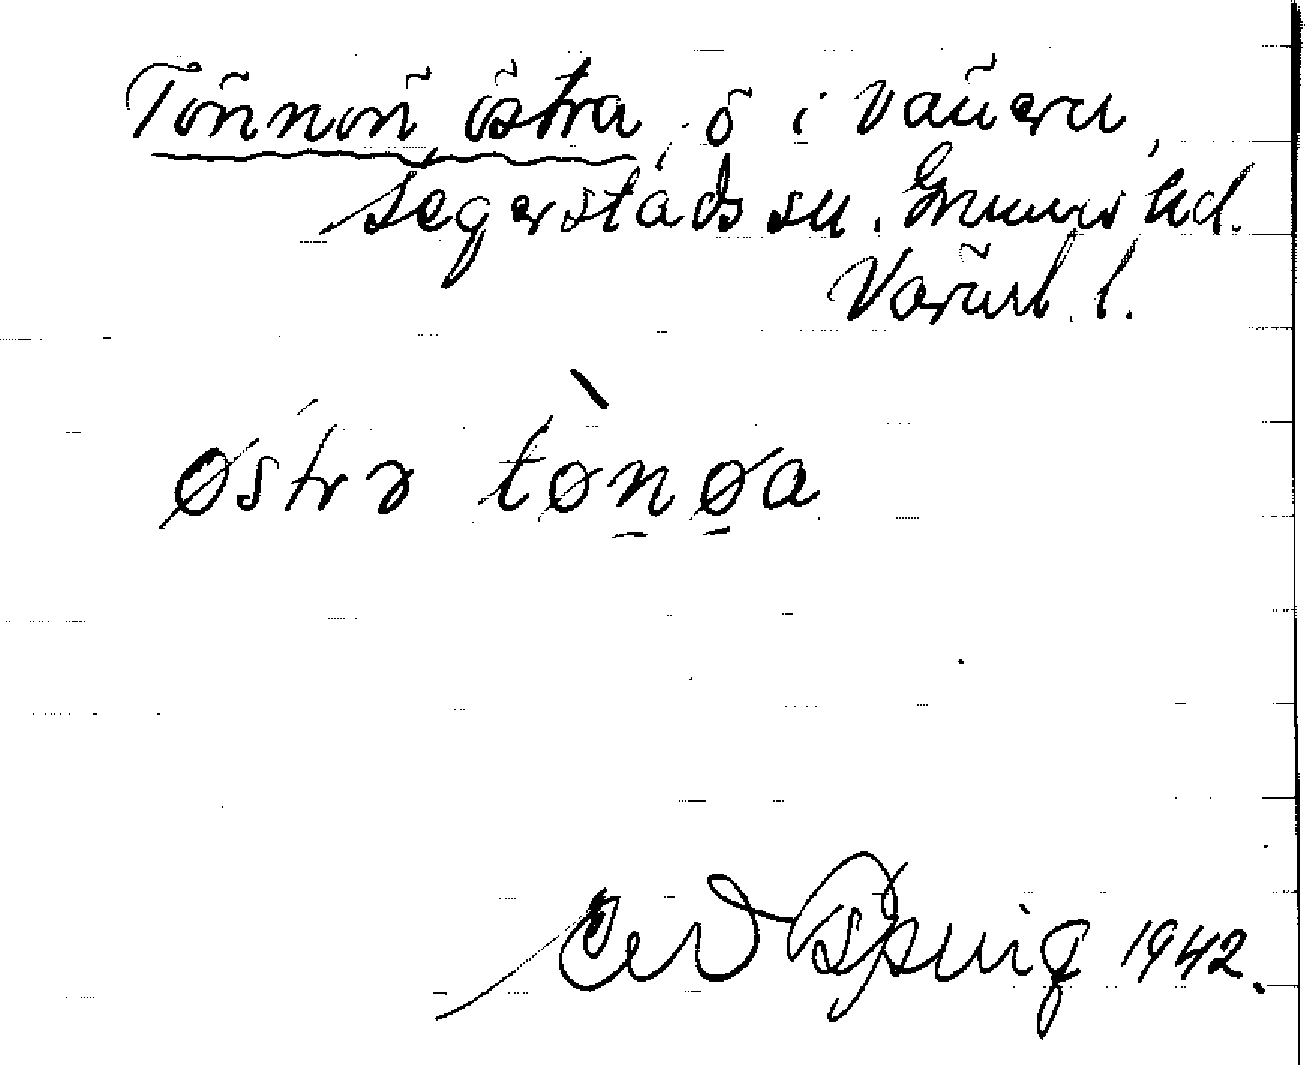 Tönnön, östra, ö i Vänern,
Segerstads sn. Grums hd.
Värml. l.
østrə tònøa
1942.